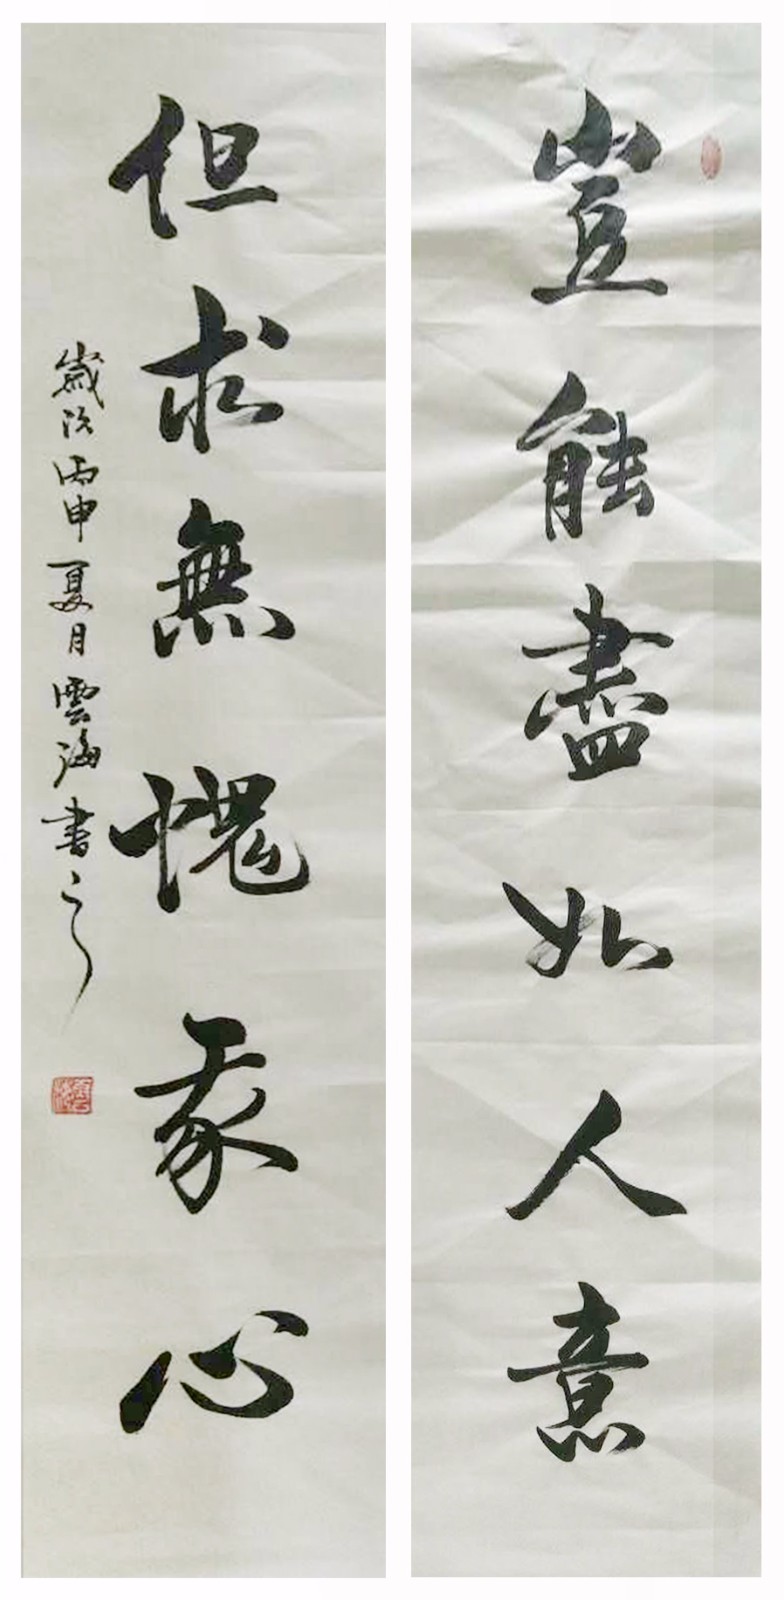 豈能盡如人意
但求無愧我心
歲次丙申夏月雲海書之